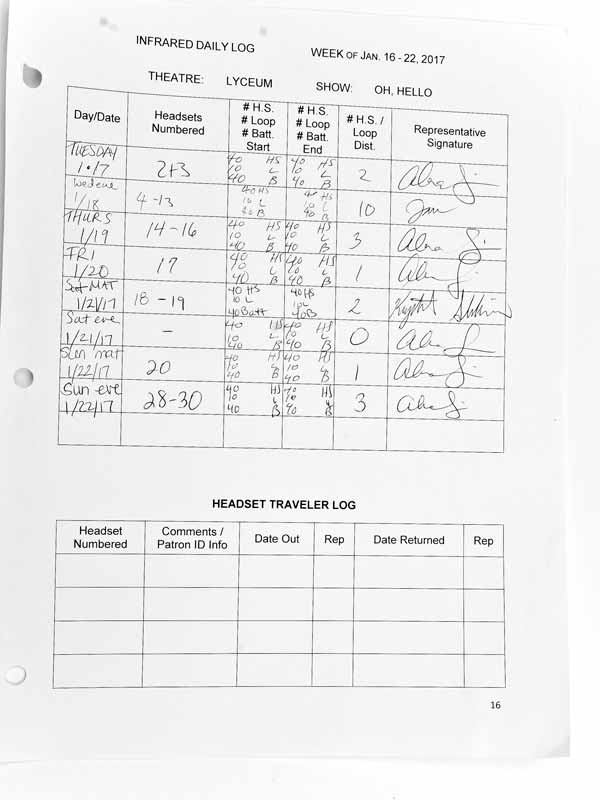 INFRARED DAILY LOG WEEK OF JAN. 16 - 22, 2017
THEATRE: LYCEUM SHOW: OH, HELLO
Day/Date Headsets Numbered # H.S. # Loop # Batt. Start # H.S. # Loop # Batt. End # H.S. / Loop Dist. Representative Signature
TUESDAY 2+3 40 HS 10 L 40 B 40 HS 10 L 40 B 2
1/18 4-13 40 HS 10 L 40 B 40 HS 10 L 40 B 10
THURS 1/19 14-16 40 HS 10 L 40 B 40 HS 10 L 40 B 3
FRI 1/20 17 40 HS 10 L 40 B 40 HS 10 L 40 B 1
Sat MAT 1/21/17 18 - 19 40 HS 10 L 40 Batt 40 HS 10L 40B 2
Sat eve 1/21/17 - 40 HS 10 L 40 B 40 HS 10 L 40 B 0
Sun mat 1/22/17 20 40 HS 10 L 40 B 40 HS 10 L 40 B 1
Sun eve 1/22/17 28-30 40 HS 10 L 40 B 40 HS 10 L 40 B 3
HEADSET TRAVELER LOG
Headset Numbered Comments / Patron ID Info Date Out Rep Date Returned Rep
16